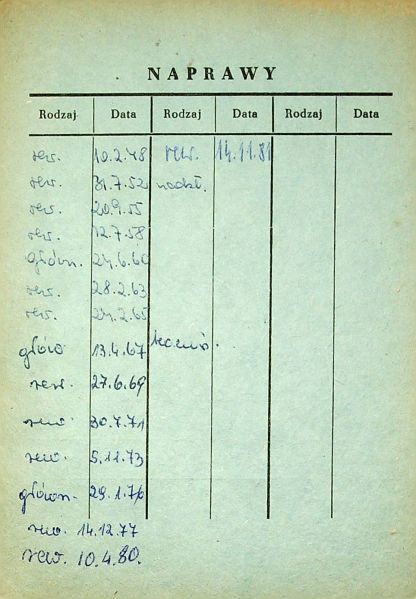 NAPRAWY
Rodzaj Data Rodzaj Data Rodzaj Data
rew. 10.2.48 rew. 14.11.81
rew. 31.7.52 nadzł.
rew. 20.9.55
rew. 12.7.58
główn. 24.6.60
rew. 28.2.63
rew. 24.2.65
główn 13.4.67
rew. 27.6.69
rew. 30.7.71
rew. 5.11.73
główn. 29.1.76
rew. 14.12.77
rew. 10.4.80.